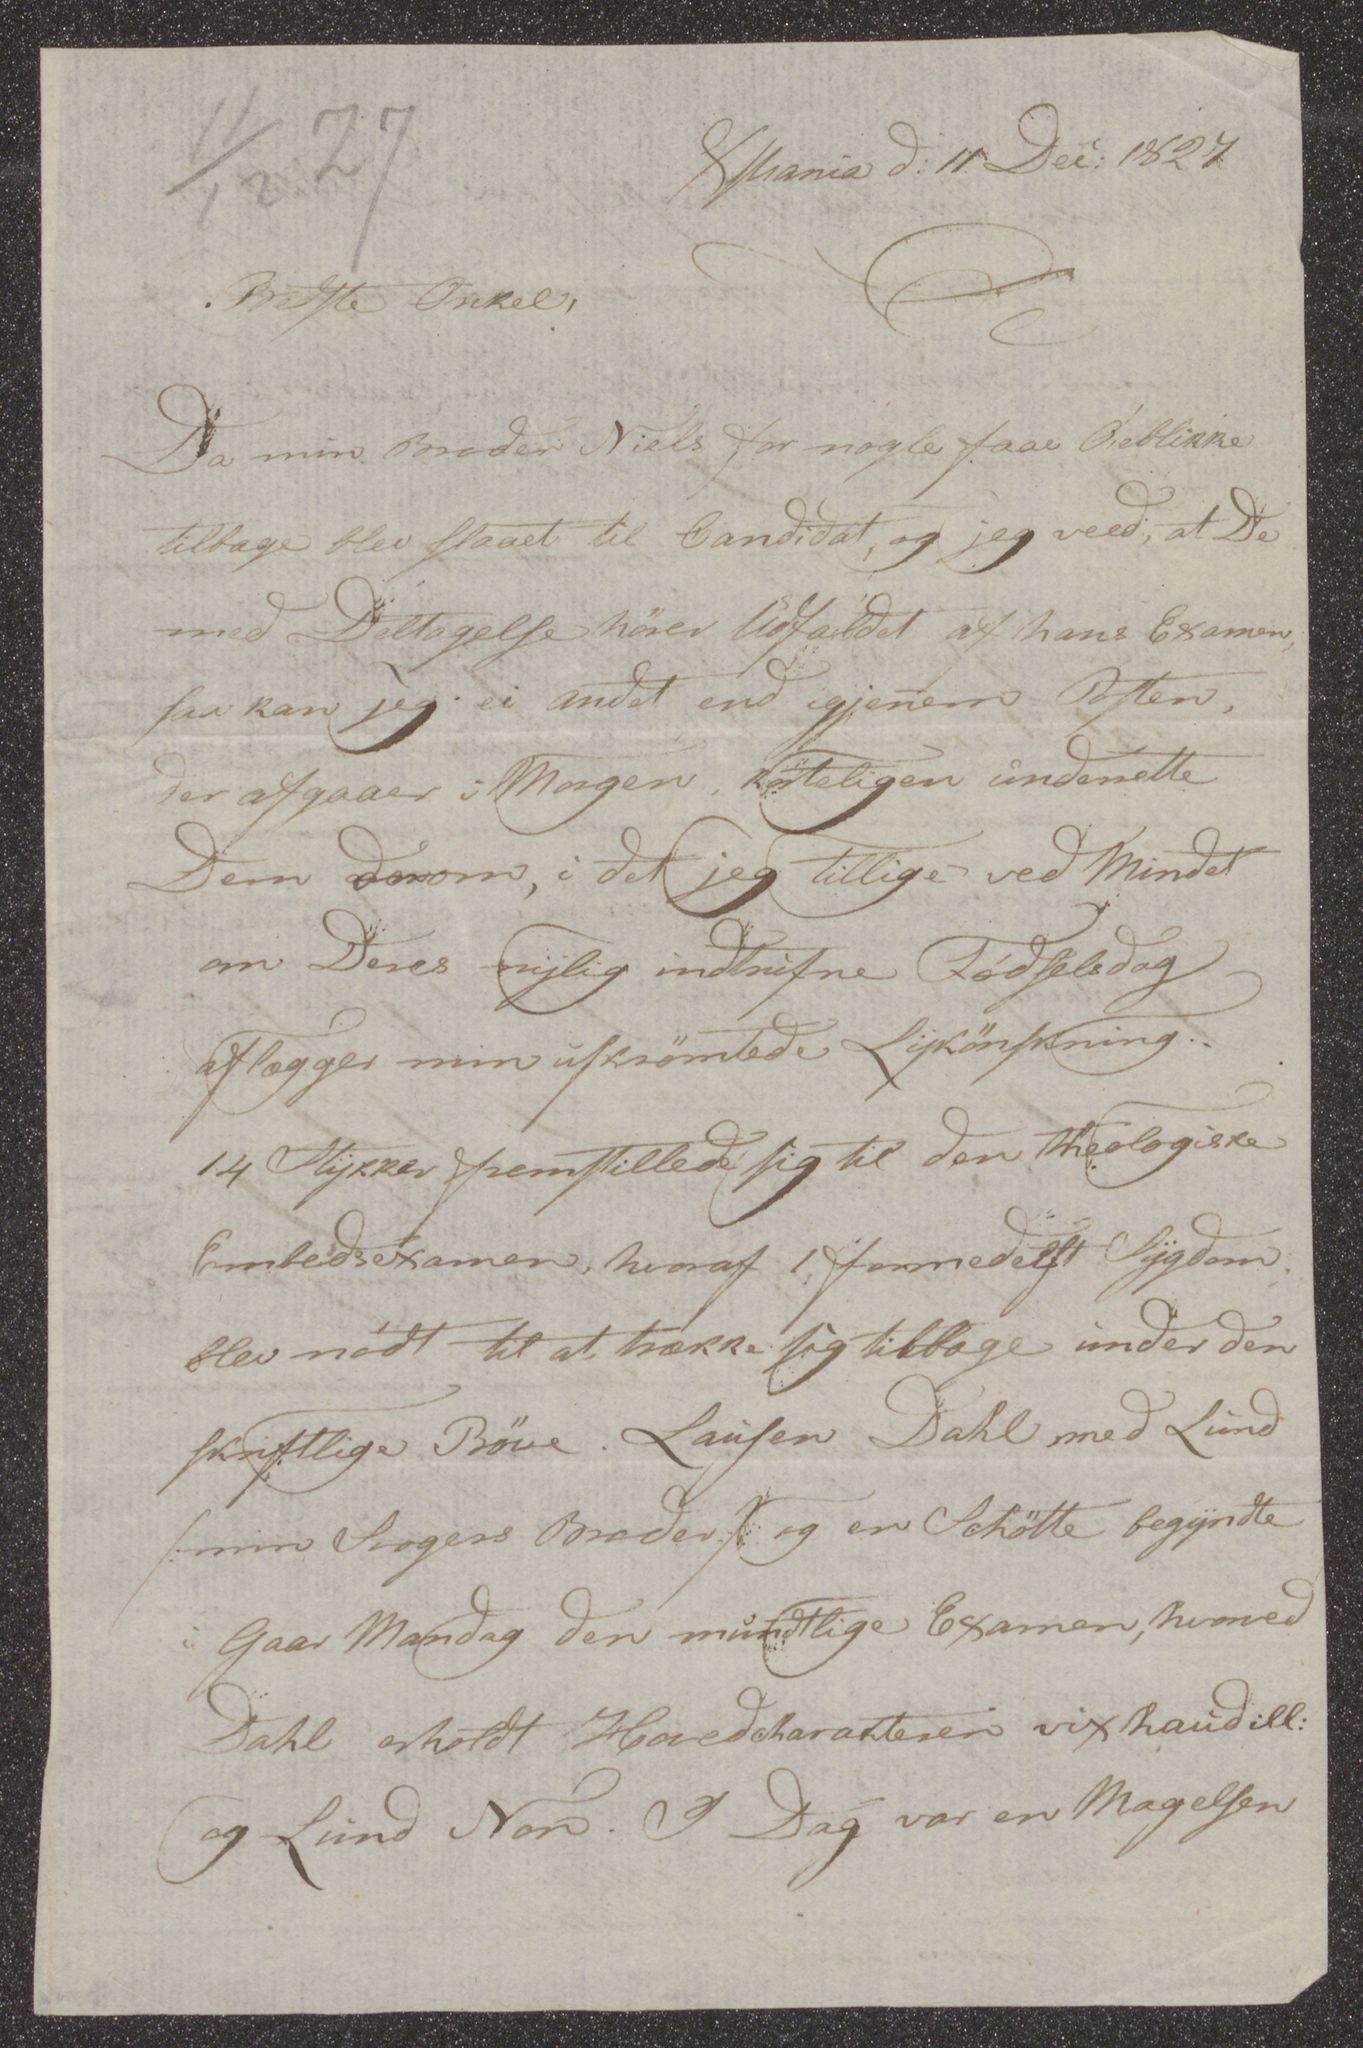 11/12 27
Xstiania d: 11 Dec: 1827
Bedste Onkel,
Da min Broder Niels for nogle faae Öieblikke
tilbage blev slaaet til Candidat, og jeg veed, at De
med Deltagelse hörer Udfaldet af hans Examen,
saa kan jeg ei andet end igjenem Posten,
der afgaaer i Morgen, korteligen underrette
Dem derom, i det jeg tillige ved Mindet
om Deres nylig indtrufne Födselsdag
aflægger min uskrömtede Lykönskning.
14 Stykker fremstillede sig til den theologiske
Embedsexamen, hvoraf 1, formedelst Sygdom
blev nödt til at trække sig tilbage under den
skriftlige Pröve. Laurent Dahl med Lund
/: min Svogers Broder :/ og en Schötte begyndte
i Gaar Mandag den mundtlige Examen, hvorved
Dahl erholdt Hovedcharakteren vix haud ill:
og Lund Non. I Dag var en Magelsen